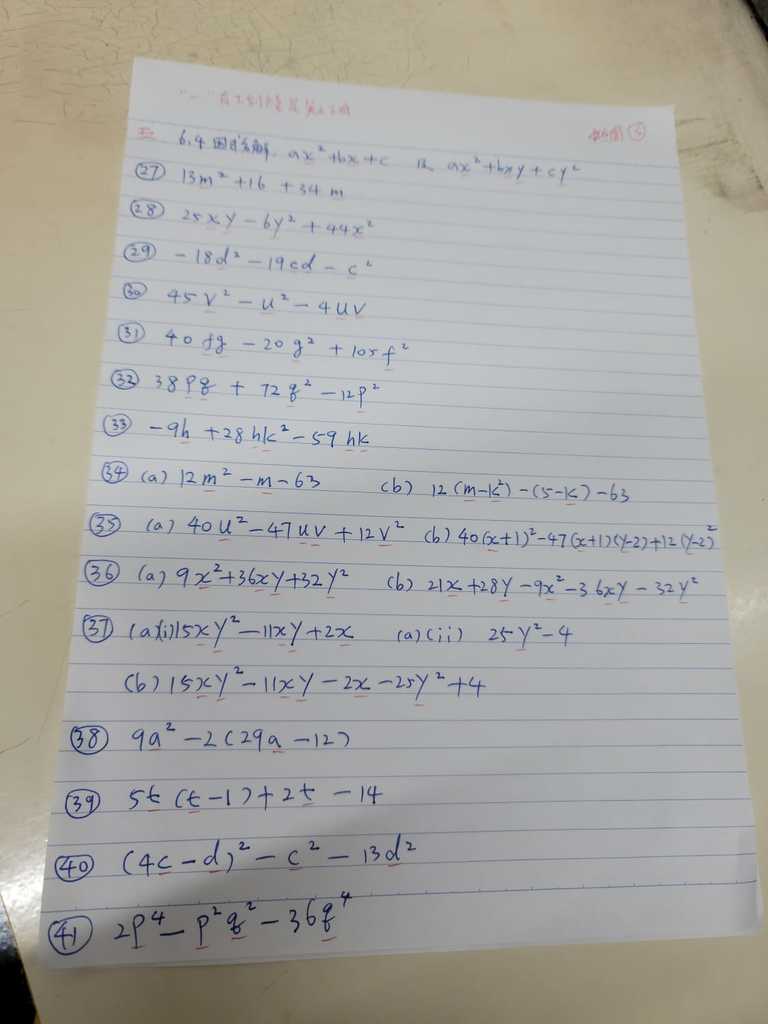 6.4 因式分解 ax²+bx+c 及 ax²+bxy+cy²
㉗ 13m²+16+34m
㉘ 25xy-6y²+44x²
㉙ -18d²-19cd-c²
㉚ 45v²-u²-4uv
㉛ 40fg-20g²+105f²
㉜ 38pq+72q²-12p²
㉝ -9h+28hk²-59hk
㉞ (a) 12m²-m-63 (b) 12(m-k²)-(5-k)-63
㉟ (a) 40u²-47uv+12v² (b) 40(x+1)²-47(x+1)(y-2)+12(y-2)²
㊱ (a) 9x²+36xy+32y² (b) 21x+28y-9x²-36xy-32y²
㊲ (a)(i) 15xy²-11xy+2x (a)(ii) 25y²-4
(b) 15xy²-11xy-2x-25y²+4
㊳ 9a²-2(29a-12)
㊴ 5t(t-1)+2t-14
㊵ (4c-d)²-c²-13d²
㊶ 2p⁴-p²q²-36q⁴